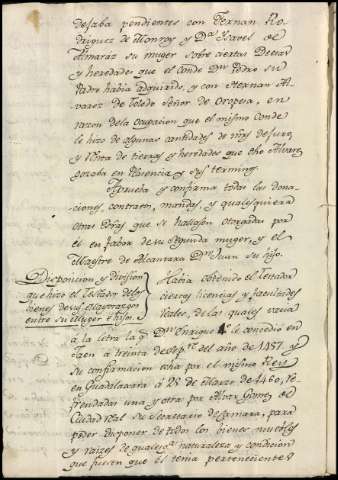 dejaba pendientes con Fernan Ro-
driguez de Monroy y Dª Isavel de
Almaraz su muger sobre ciertas Deesas
y heredades que el conde Dⁿ Pedro su
Padre habia adquirido, y con Hernan Al-
varez de Toledo Señor de Oropesa, en
razon dela ocupacion que el mismo conde
le hizo de algunas cantidades de mrs de juro
y Renta de tierras y heredades que dho Alvarez
gozaba en Plasencia y sus terminos.
Aprueba y confirma todas las dona-
ciones, contratos, mandas, y qualesquiera
otras cosas que se hallasen otorgadas por
el en fabor de su segunda muger, y el
Maestre de Alcantara Dⁿ Juan su hijo.
Disposicion, y division
que hizo el Testador delos
bienes de sus Mayorazgos
entre su Muger e hijos.
Habia obtenido el Testador
ciertas licencias y facultades
reales, de las quales sacia
a la letra la qᵉ Dⁿ Enrique 4º le concedio en
Jaen a treinta de Sepᵗᵉ del año de 1457. y
su confirmacion dada por el mismo Rey
en Guadalaxara á 28 de Marzo de 1460, re-
frendadas una y otra por Alvar Gomez de
Ciudad real su Secretario de Camara, para
poder disponer de todos los bienes muebles
y raizes de qualesqᵃ naturaleza y condicion
que fuesen que el tenia pertenecientes